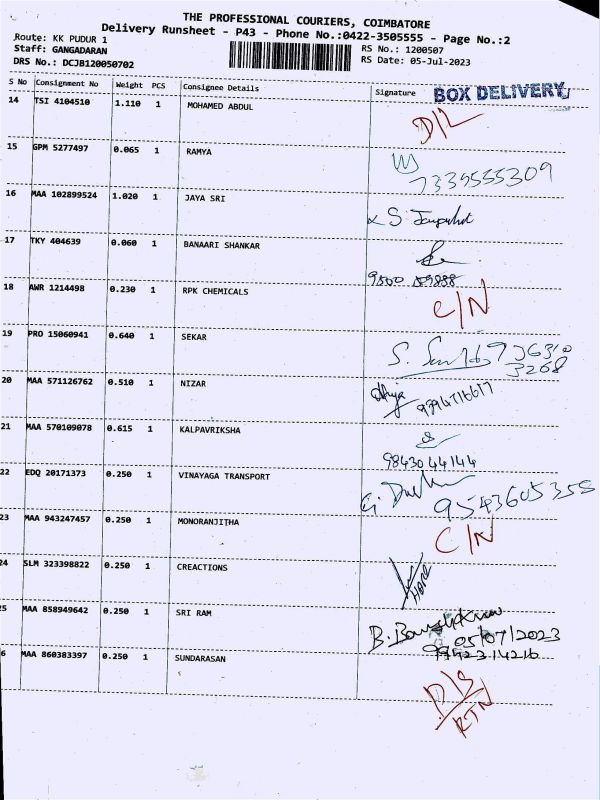 THE PROFESSIONAL COURIERS, COIMBATORE
Delivery Runsheet - P43 - Phone No.:0422-3505555 - Page No.:2
Route: KK PUDUR 1
RS No.: 1200507
Staff: GANGADARAN
RS Date: 05-Jul-2023
DRS No.: DCJB120050702
S No Consignment No Weight PCS Consignee Details Signature BOX DELIVERY
14 TSI 4104510 1.110 1 MOHAMED ABDUL D/L
15 GPM 5277497 0.065 1 RAMYA
7339555309
16 MAA 102899524 1.020 1 JAYA SRI
17 TKY 404639 0.060 1 BANAARI SHANKAR
9500 59888
18 AWR 1214498 0.230 1 RPK CHEMICALS C/N
19 PRO 15060941 0.640 1 SEKAR
3268
20 MAA 571126762 0.510 1 NIZAR
21 MAA 570109078 0.615 1 KALPAVRIKSHA
9843044144
22 EDQ 20171373 0.250 1 VINAYAGA TRANSPORT
9543605355
23 MAA 943247457 0.250 1 MONORANJITHA C/N
24 SLM 323398822 0.250 1 CREACTIONS
25 MAA 858949642 0.250 1 SRI RAM
05/07/2023
9942314216
6 MAA 860383397 0.250 1 SUNDARASAN
D/B
RTN